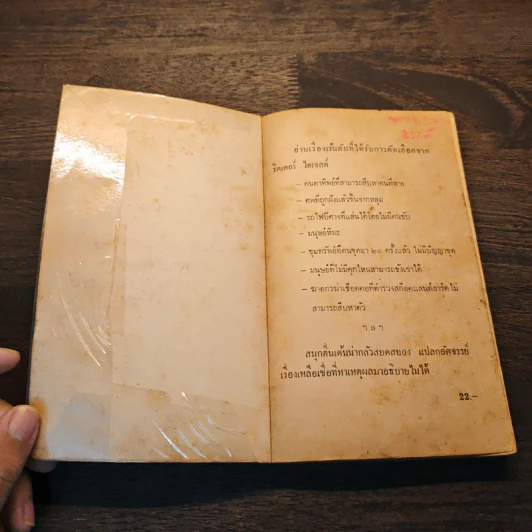 อ่านเรื่องเร้นลับที่ได้รับการคัดเลือกจาก
รีดเดอร์ ไดเจสต์
– คนตาทิพย์ที่สามารถสืบหาคนที่หาย
– ศพที่ถูกฝังแล้วขึ้นจากหลุม
– รถไฟปีศาจที่แล่นได้โดยไม่มีคนขับ
– มนุษย์หิมะ
– ขุมทรัพย์ที่คนขุดมา ๒๐ ครั้งแล้ว ไม่มีปัญญาขุด
– มนุษย์ที่ไม่มีคุกไหนสามารถขังเขาได้
– ฆาตกรน่าเชือดคอที่ตำรวจสก็อตแลนด์ยาร์ดไม่
สามารถสืบหาตัว
ฯ ล ฯ
สนุกตื่นเต้นน่ากลัวสยดสยอง แปลกอัศจรรย์
เรื่องเหลือเชื่อที่หาเหตุผลมาอธิบายไม่ได้
22.–